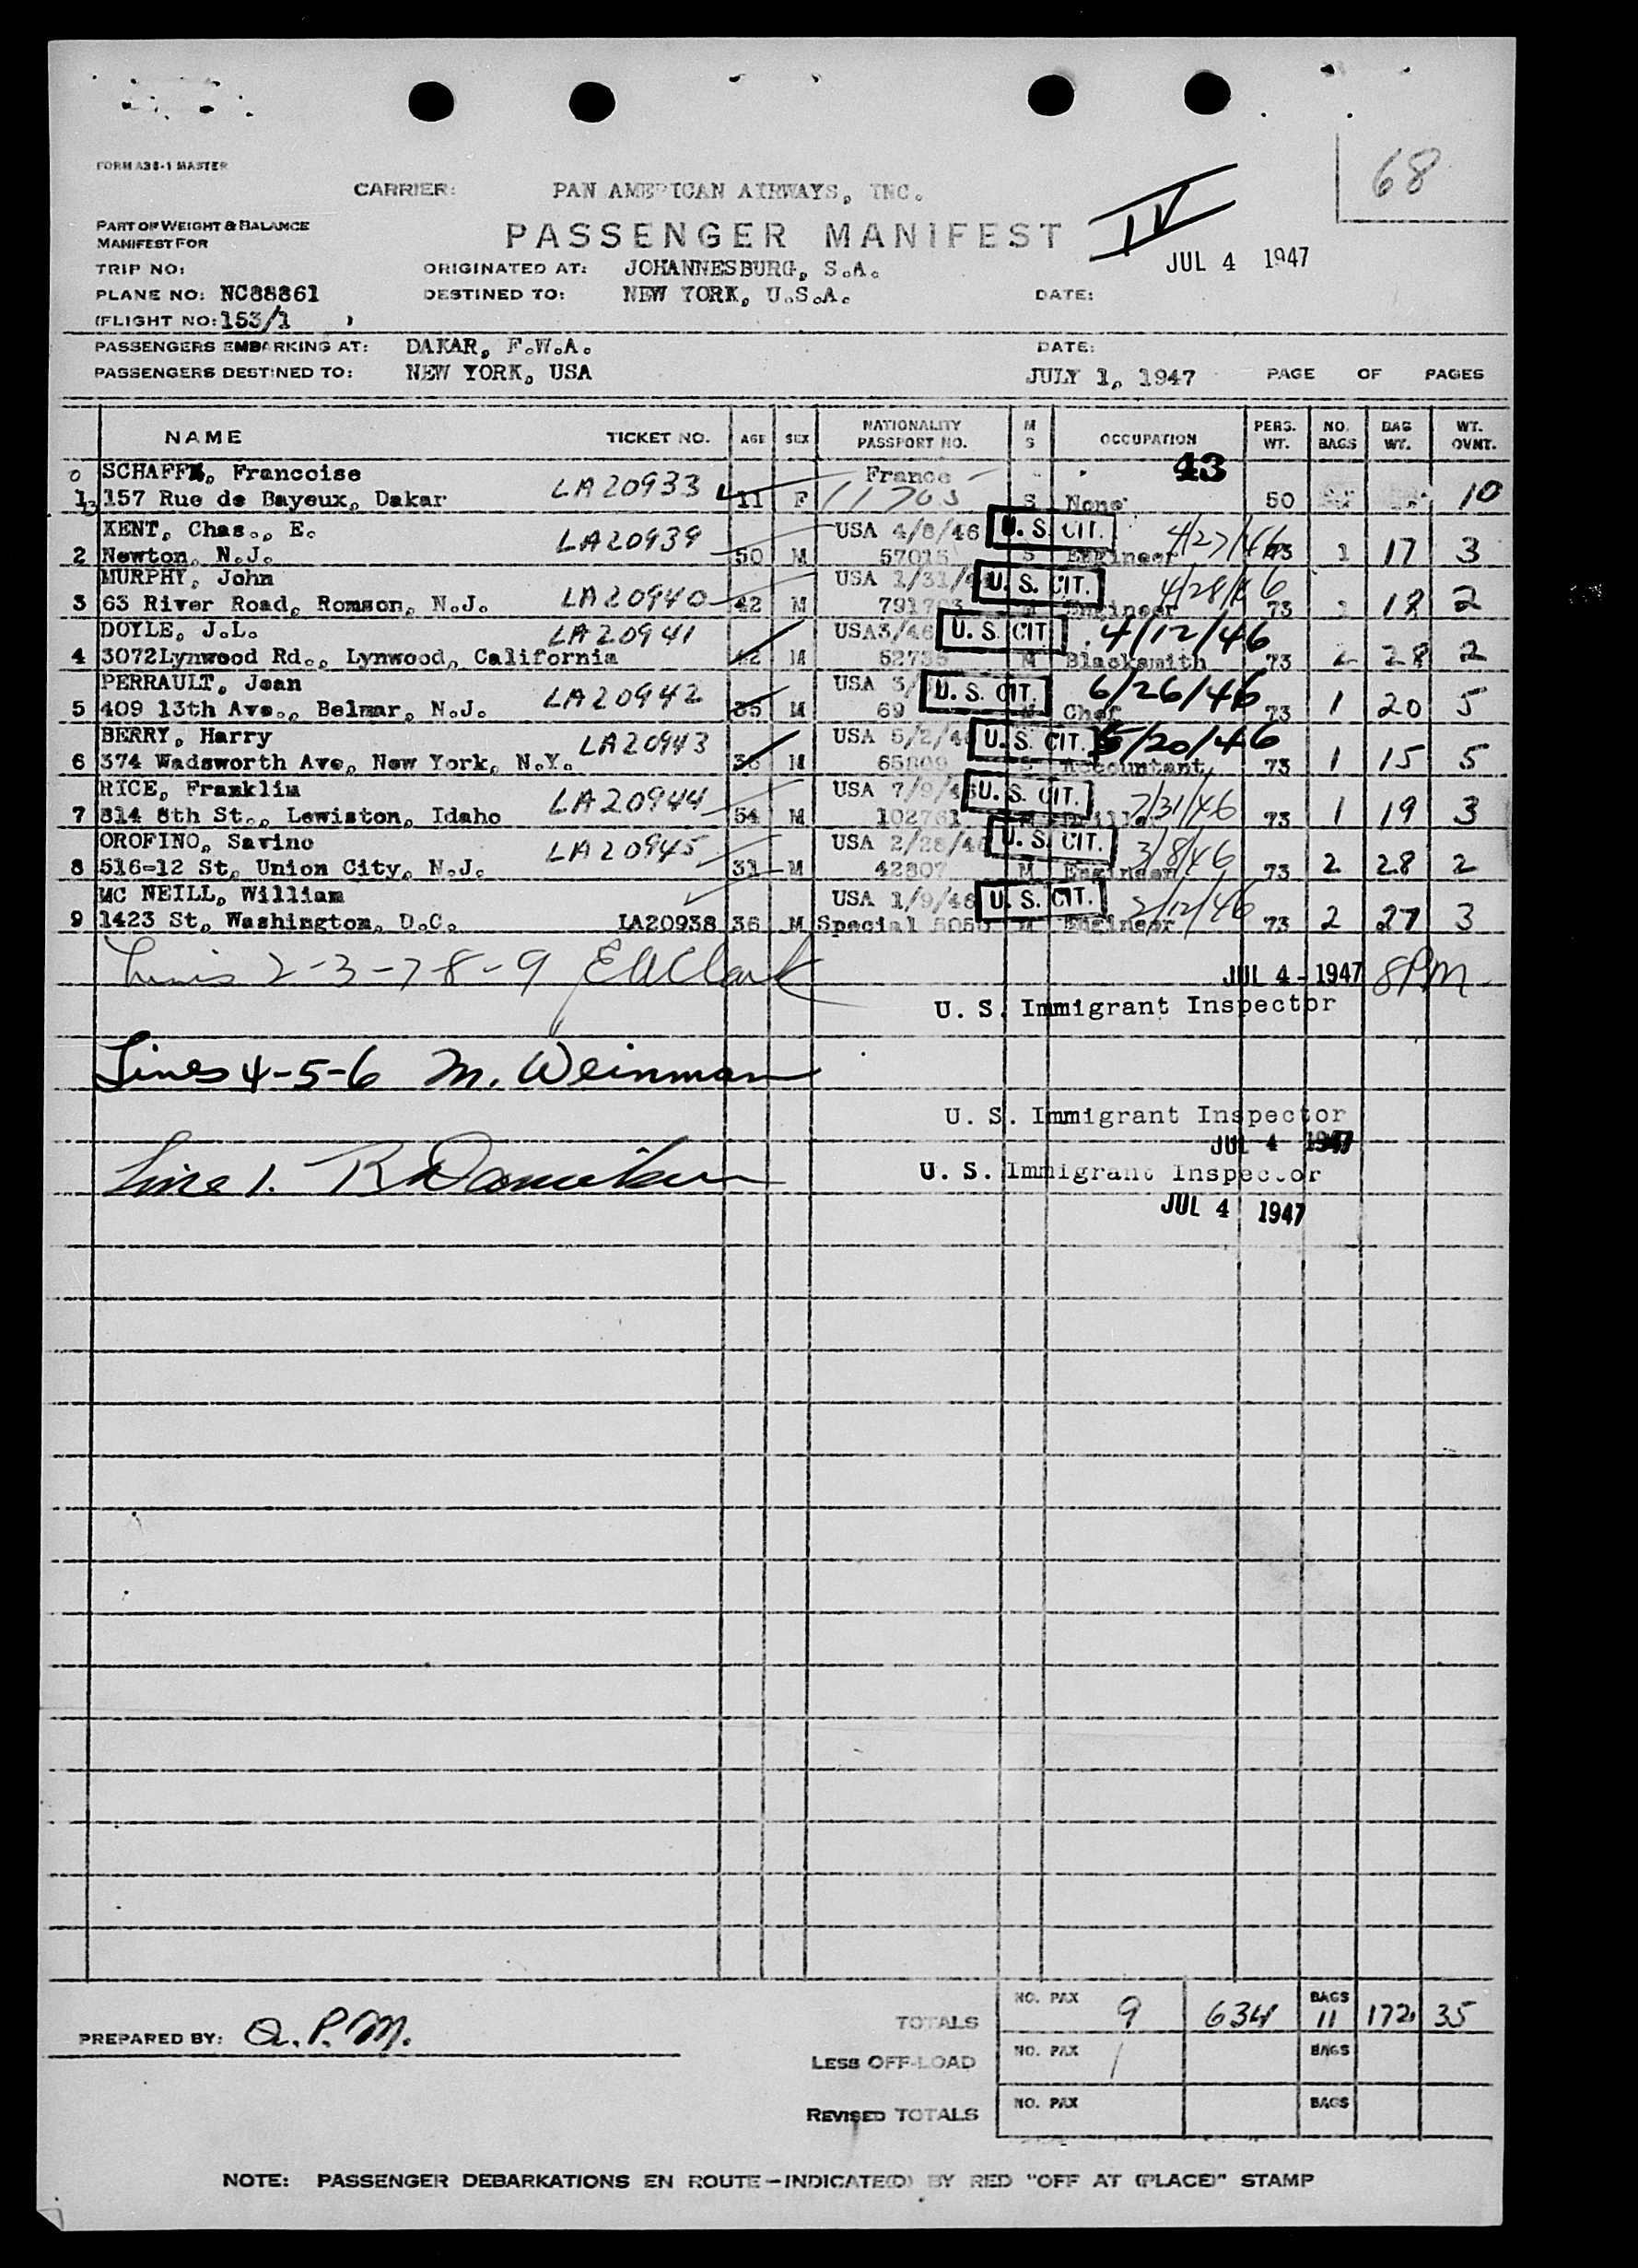 FORM A38-1 MASTER
68
CARRIER: PAN AMERICAN AIRWAYS, INC.
IV
PART OF WEIGHT & BALANCE
MANIFEST FOR
PASSENGER MANIFEST
JUL 4 1947
TRIP NO: ORIGINATED AT: JOHANNESBURG, S.A.
PLANE NO: NC88861 DESTINED TO: NEW YORK, U.S.A. DATE:
(FLIGHT NO: 153/1 )
PASSENGERS EMBARKING AT: DAKAR, F.W.A. DATE:
PASSENGERS DESTINED TO: NEW YORK, USA JULY 1, 1947 PAGE OF PAGES
NAME TICKET NO. AGE SEX NATIONALITY PASSPORT NO. M S OCCUPATION PERS. WT. NO. BAGS BAG WT. WT. OVNT.
43
0 SCHAFF, Francoise LA20933 France
1 157 Rue de Bayeux, Dakar 11 F 11703 S None 50 10
KENT, Chas., E. LA20939 USA 4/8/46 U. S. CIT. 4/27/46
2 Newton, N.J. 50 M 57015 S Engineer 73 1 17 3
MURPHY, John LA20940 USA 1/31/ U. S. CIT. 4/28/46
3 63 River Road, Romson, N.J. 42 M M Engineer 73 1 18 2
DOYLE, J.L. LA20941 USA3/46 U. S. CIT 4/12/46
4 3072Lynwood Rd., Lynwood, California 42 M 52735 M Blacksmith 73 2 28 2
PERRAULT, Jean LA20942 USA 3/ U. S. CIT. 6/26/46
5 409 13th Ave., Belmar, N.J. 35 M 69 Chef 73 1 20 5
BERRY, Harry LA20943 USA 5/2/46 U. S. CIT. 5/20/46
6 374 Wadsworth Ave, New York, N.Y. 36 M 65809 S Accountant 73 1 15 5
RICE, Franklin LA20944 USA 7/9/46 U. S. CIT. 7/31/46
7 814 8th St., Lewiston, Idaho 54 M 102761 M Driller 73 1 19 3
OROFINO, Savino LA20945 USA 2/28/46 U. S. CIT. 3/8/46
8 516-12 St, Union City, N.J. 31 M 42807 M Engineer 73 2 28 2
MC NEILL, William USA 1/9/46 U. S. CIT. 2/12/46
9 1423 St, Washington, D.C. LA20938 36 M Special 5056 M Engineer 73 2 27 3
Lines 2-3-7-8-9 E W Clark JUL 4 - 1947 8PM
U. S. Immigrant Inspector
Lines 4-5-6 M. Weinman
U. S. Immigrant Inspector
JUL 4 1947
Line 1.
U. S. Immigrant Inspector
JUL 4 1947
PREPARED BY: Q.P.M.
TOTALS NO. PAX 9 634 BAGS 11 172 35
LESS OFF-LOAD NO. PAX 1 BAGS
REVISED TOTALS NO. PAX BAGS
NOTE: PASSENGER DEBARKATIONS EN ROUTE-INDICATE(D) BY RED "OFF AT (PLACE)" STAMP